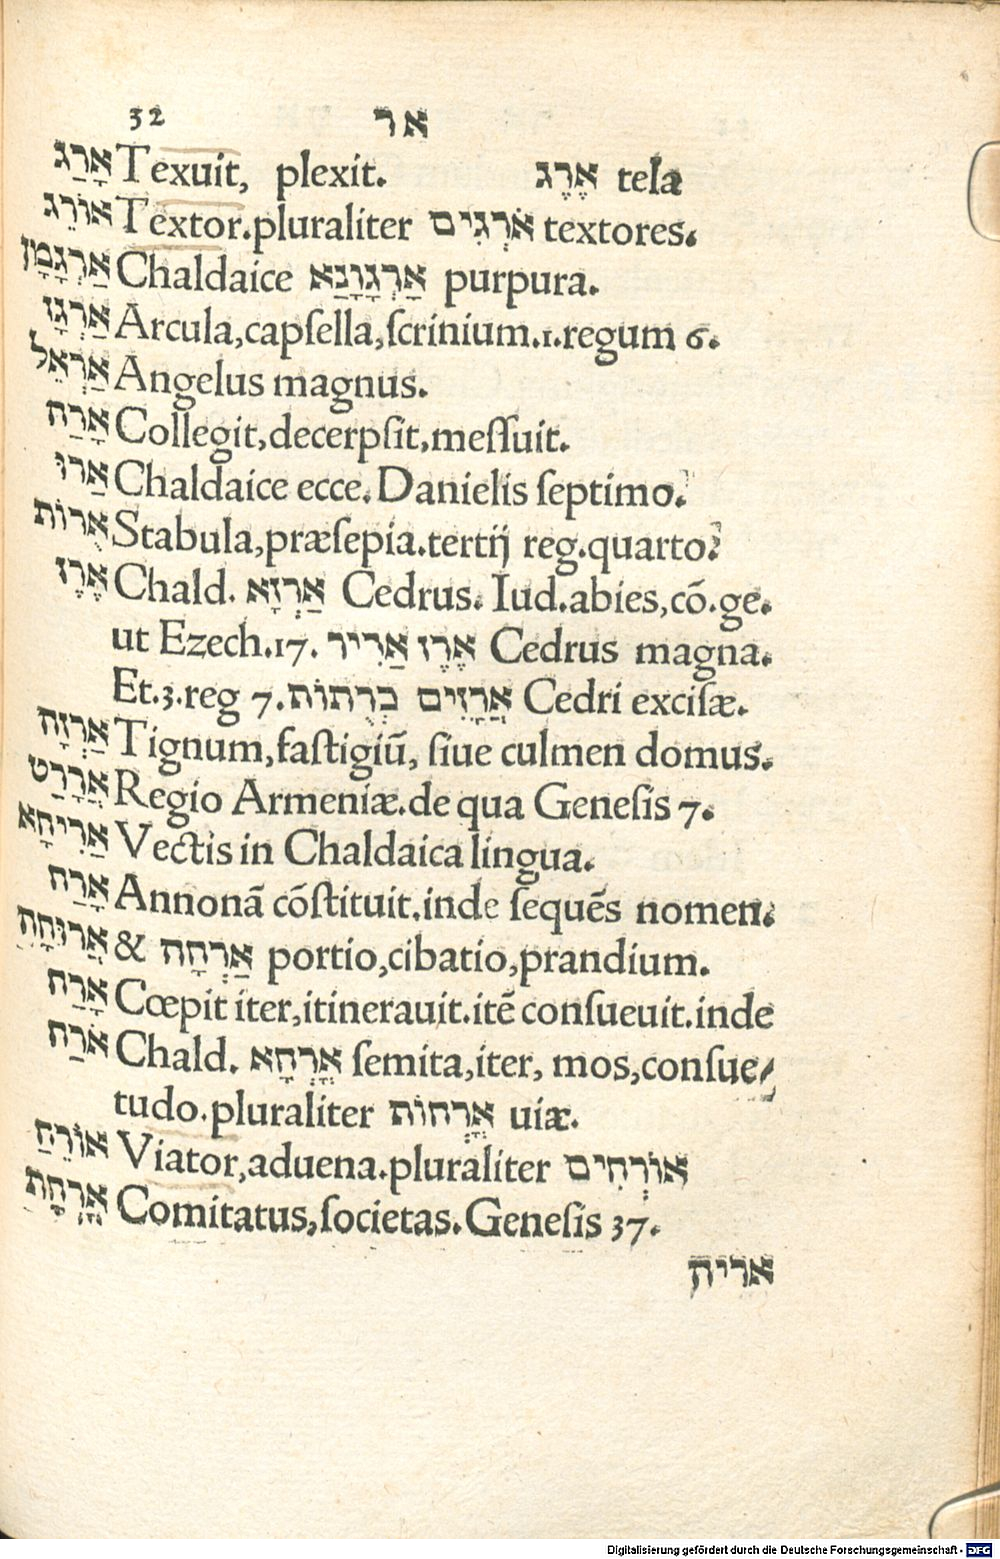 32 אר
אָרַג Texuit, plexit. אֶרֶג tela
אוֹרֵג Textor.pluraliter אֹרְגִים textores.
אַרְגָמָן Chaldaice אָרְגָוָנַא purpura.
אַרְגָז Arcula,capſella,ſcrinium.1.regum 6.
אַרְאֵל Angelus magnus.
אָרַח Collegit,decerpſit,meſſuit.
אַרוּ Chaldaice ecce.Danielis ſeptimo.
אֻרוֹת Stabula,præſepia.tertij reg.quarto.
אֶרֶז Chald. אַרְזָא Cedrus. Iud.abies,cō.ge.
ut Ezech.17. אֶרֶז אַדִיר Cedrus magna.
Et.3.reg 7. אֲרָזִים כְרֻתוֹת Cedri exciſæ.
אַרְזָה Tignum,faſtigiū, ſiue culmen domus.
אֲרָרַט Regio Armeniæ.de qua Geneſis 7.
אַרִיחָא Vectis in Chaldaica lingua.
אָרַח Annonā cōſtituit.inde ſequēs nomen.
אֲרוּחָה & אַרְחָה portio,cibatio,prandium.
אָרַח Cœpit iter,itinerauit.itē conſueuit.inde
אֹרַח Chald. אֳרְחָא ſemita,iter, mos,conſue/
tudo.pluraliter אֳרְחוֹת uiæ.
אוֹרֵחַ Viator,aduena.pluraliter אוֹרְחִים
אֳרְחָה Comitatus,ſocietas.Geneſis 37.
אריח
Digitalisierung gefördert durch die Deutsche Forschungsgemeinschaft - DFG